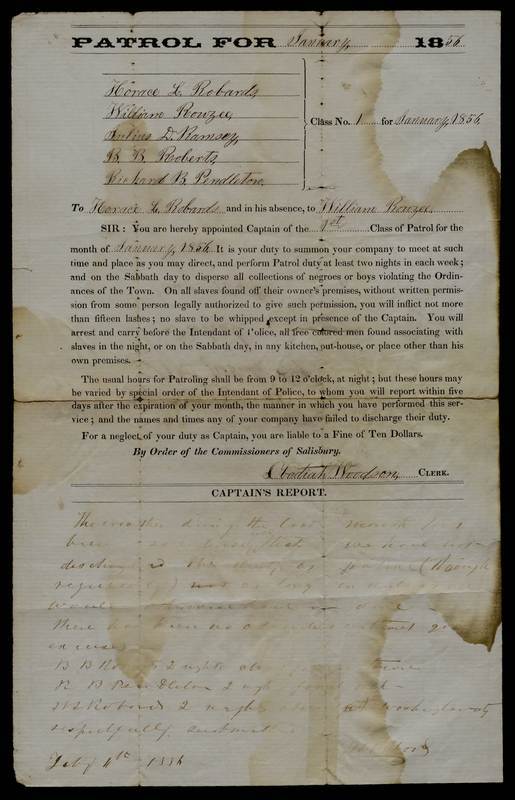 PATROL FOR January, 1856
Horace L. Robards,
William Rouzee,
Julius D. Ramsey,
B. B. Roberts,
Richard B. Pendleton,
Class No. 1 for January, 1856
To Horace L. Robards and in his absence, to William Rouzee
SIR: You are hereby appointed Captain of the 1st Class of Patrol for the
month of January, 1856. It is your duty to summon your company to meet at such
time and place as you may direct, and perform Patrol duty at least two nights in each week;
and on the Sabbath day to disperse all collections of negroes or boys violating the Ordin-
ances of the Town. On all slaves found off their owner's premises, without written permis-
sion from some person legally authorized to give such permission, you will inflict not more
than fifteen lashes; no slave to be whipped except in presence of the Captain. You will
arrest and carry before the Intendant of Police, all free colored men found associating with
slaves in the night, or on the Sabbath day, in any kitchen, out-house, or place other than his
own premises.
The usual hours for Patroling shall be from 9 to 12 o'clock, at night; but these hours may
be varied by special order of the Intendant of Police, to whom you will report within five
days after the expiration of your month, the manner in which you have performed this ser-
vice; and the names and times any of your company have failed to discharge their duty.
For a neglect of your duty as Captain, you are liable to a Fine of Ten Dollars.
By Order of the Commissioners of Salisbury.
Obadiah Woodson, CLERK.
CAPTAIN'S REPORT.
The during the last month has
been that we have not
discharged the duty of patrol (though
not as long
would have
There has been no without good
excuse
B B 2 nights
R B Pendleton 2 nights
Robards 2 nights
respectfully submitted
Feby 4th 1856